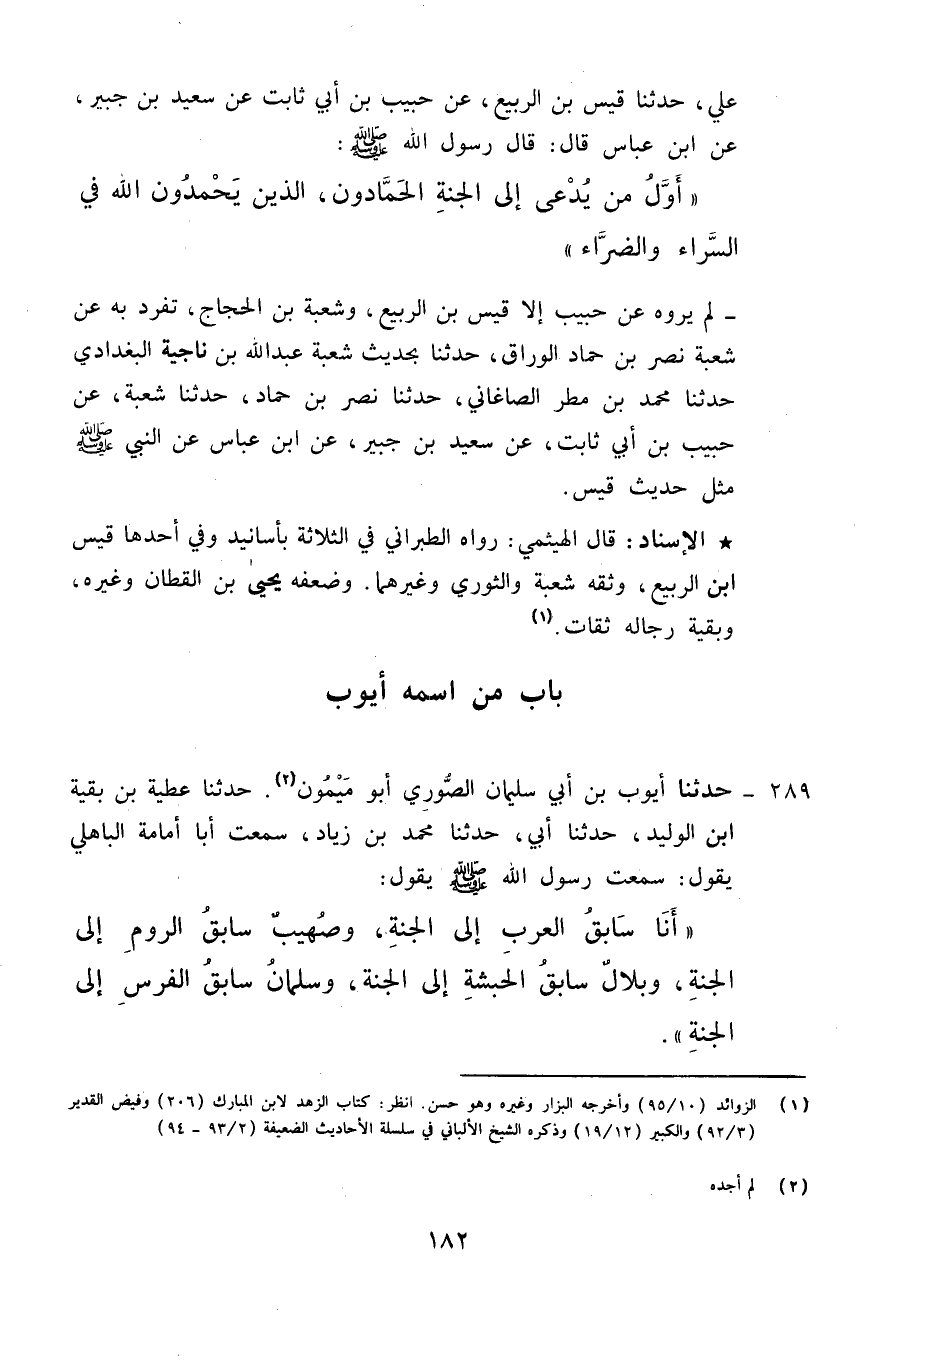 علي، حدثنا قيس بن الربيع، عن حبيب بن أبي ثابت عن سعيد بن جبير،
عن ابن عباس قال: قال رسول الله ﷺ:
« أَوَّلُ من يُدْعى إلى الجنةِ الحَمَّادون، الذين يَحْمدُون الله في
السَّراء والضرَّاء »
ـ لم يروه عن حبيب إلا قيس بن الربيع، وشعبة بن الحجاج، تفرد به عن
شعبة نصر بن حماد الوراق، حدثنا بحديث شعبة عبدالله بن ناجية البغدادي
حدثنا محمد بن مطر الصاغاني، حدثنا نصر بن حماد، حدثنا شعبة، عن
حبيب بن أبي ثابت، عن سعيد بن جبير، عن ابن عباس عن النبي ﷺ
مثل حديث قيس.
★ الإسناد: قال الهيثمي: رواه الطبراني في الثلاثة بأسانيد وفي أحدها قيس
ابن الربيع، وثقه شعبة والثوري وغيرهما. وضعفه يحيىٰ بن القطان وغيره،
وبقية رجاله ثقات.(١)
باب من اسمه أيوب
٢٨٩ ـ حدثنا أيوب بن أبي سليمان الصُّوري أبو مَيْمُون(٢). حدثنا عطية بن بقية
ابن الوليد، حدثنا أبي، حدثنا محمد بن زياد، سمعت أبا أمامة الباهلي
يقول: سمعت رسول الله ﷺ يقول:
« أَنَا سَابقُ العربِ إلى الجنةِ، وصُهيبٌ سابقُ الرومِ إلى
الجنةِ، وبلالٌ سابقُ الحبشةِ إلى الجنة، وسلمانُ سابقُ الفرسِ إلى
الجنةِ ».
(١) الزوائد (٩٥/١٠) وأخرجه البزار وغيره وهو حسن. انظر: كتاب الزهد لابن المبارك (٢٠٦) وفيض القدير
(٩٢/٣) والكبير (١٩/١٢) وذكره الشيخ الألباني في سلسلة الأحاديث الضعيفة (٩٣/٢ - ٩٤)
(٢) لم أجده
١٨٢